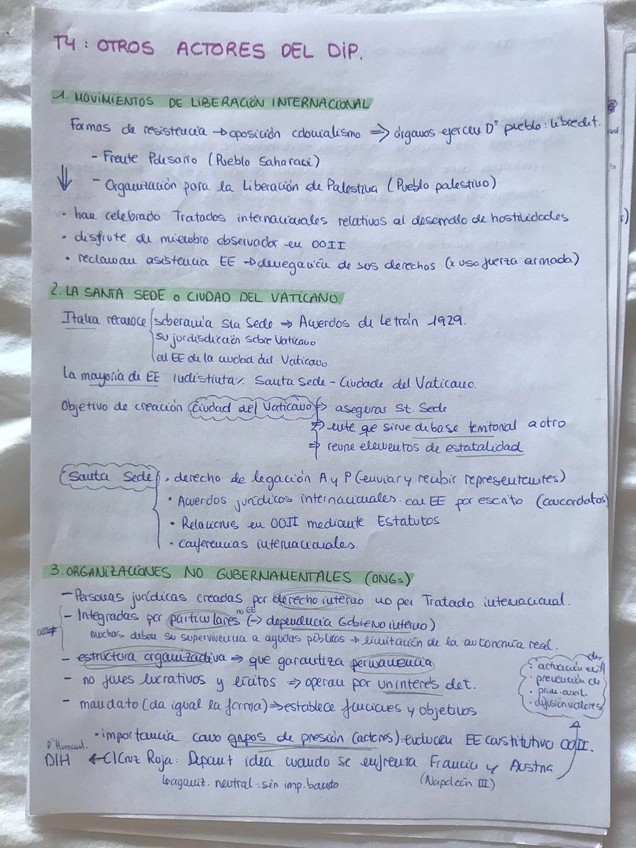 T4: OTROS ACTORES DEL DIP.
1. MOVIMIENTOS DE LIBERACIÓN INTERNACIONAL
Formas de resistencia → oposición colonialismo ⇒ órganos ejercen Dº pueblo: libredet.
- Frente Polisario (Pueblo Saharaci)
- Organización para la Liberación de Palestina (Pueblo palestino)
· han celebrado Tratados internacionales relativos al desarrollo de hostilidades
· disfrute de miembro observador en OOII
· reclaman asistencia EE → denegación de sus derechos (x uso fuerza armada)
2. LA SANTA SEDE o CIUDAD DEL VATICANO
Italia reconoce soberanía Sta Sede → Acuerdos de Letrán 1929.
su jurisdicción sobre Vaticano
al EE de la ciudad del Vaticano
La mayoría de EE indistinta% Santa Sede - Ciudade del Vaticano.
Objetivo de creación Ciudad del Vaticano ⇒ asegurar St. Sede
⇒ ente que sirve de base territorial a otro
⇒ reune elementos de estatalidad
Santa Sede · derecho de legación A y P (enviar y recibir representantes)
· Acuerdos jurídicos internacionales con EE por escrito (concordatos)
· Relaciones en OOII mediante Estatutos
· conferencias internacionales.
3. ORGANIZACIONES NO GUBERNAMENTALES (ONGs)
- Personas jurídicas creadas por derecho interno no por Tratado internacional.
- Integradas por particulares no EE (→ dependencia Gobierno interno)
muchas deben su supervivencia a ayudas públicas → limitación de la autonomía real.
- estructura organizativa → que garantiza permanencia
- no fines lucrativos y lícitos ⇒ operan por un interés det.
- mandato (da igual la forma) ⇒ establece funciones y objetivos
· actuación
· prevención
· difusión valores
· importancia como grupos de presión (actores)
EE constitutivo OOII.
DIH ← CI Cruz Roja: Dunant idea cuando se enfrenta Francia y Austria
(Napoleón III)
neutral · sin imp. bando